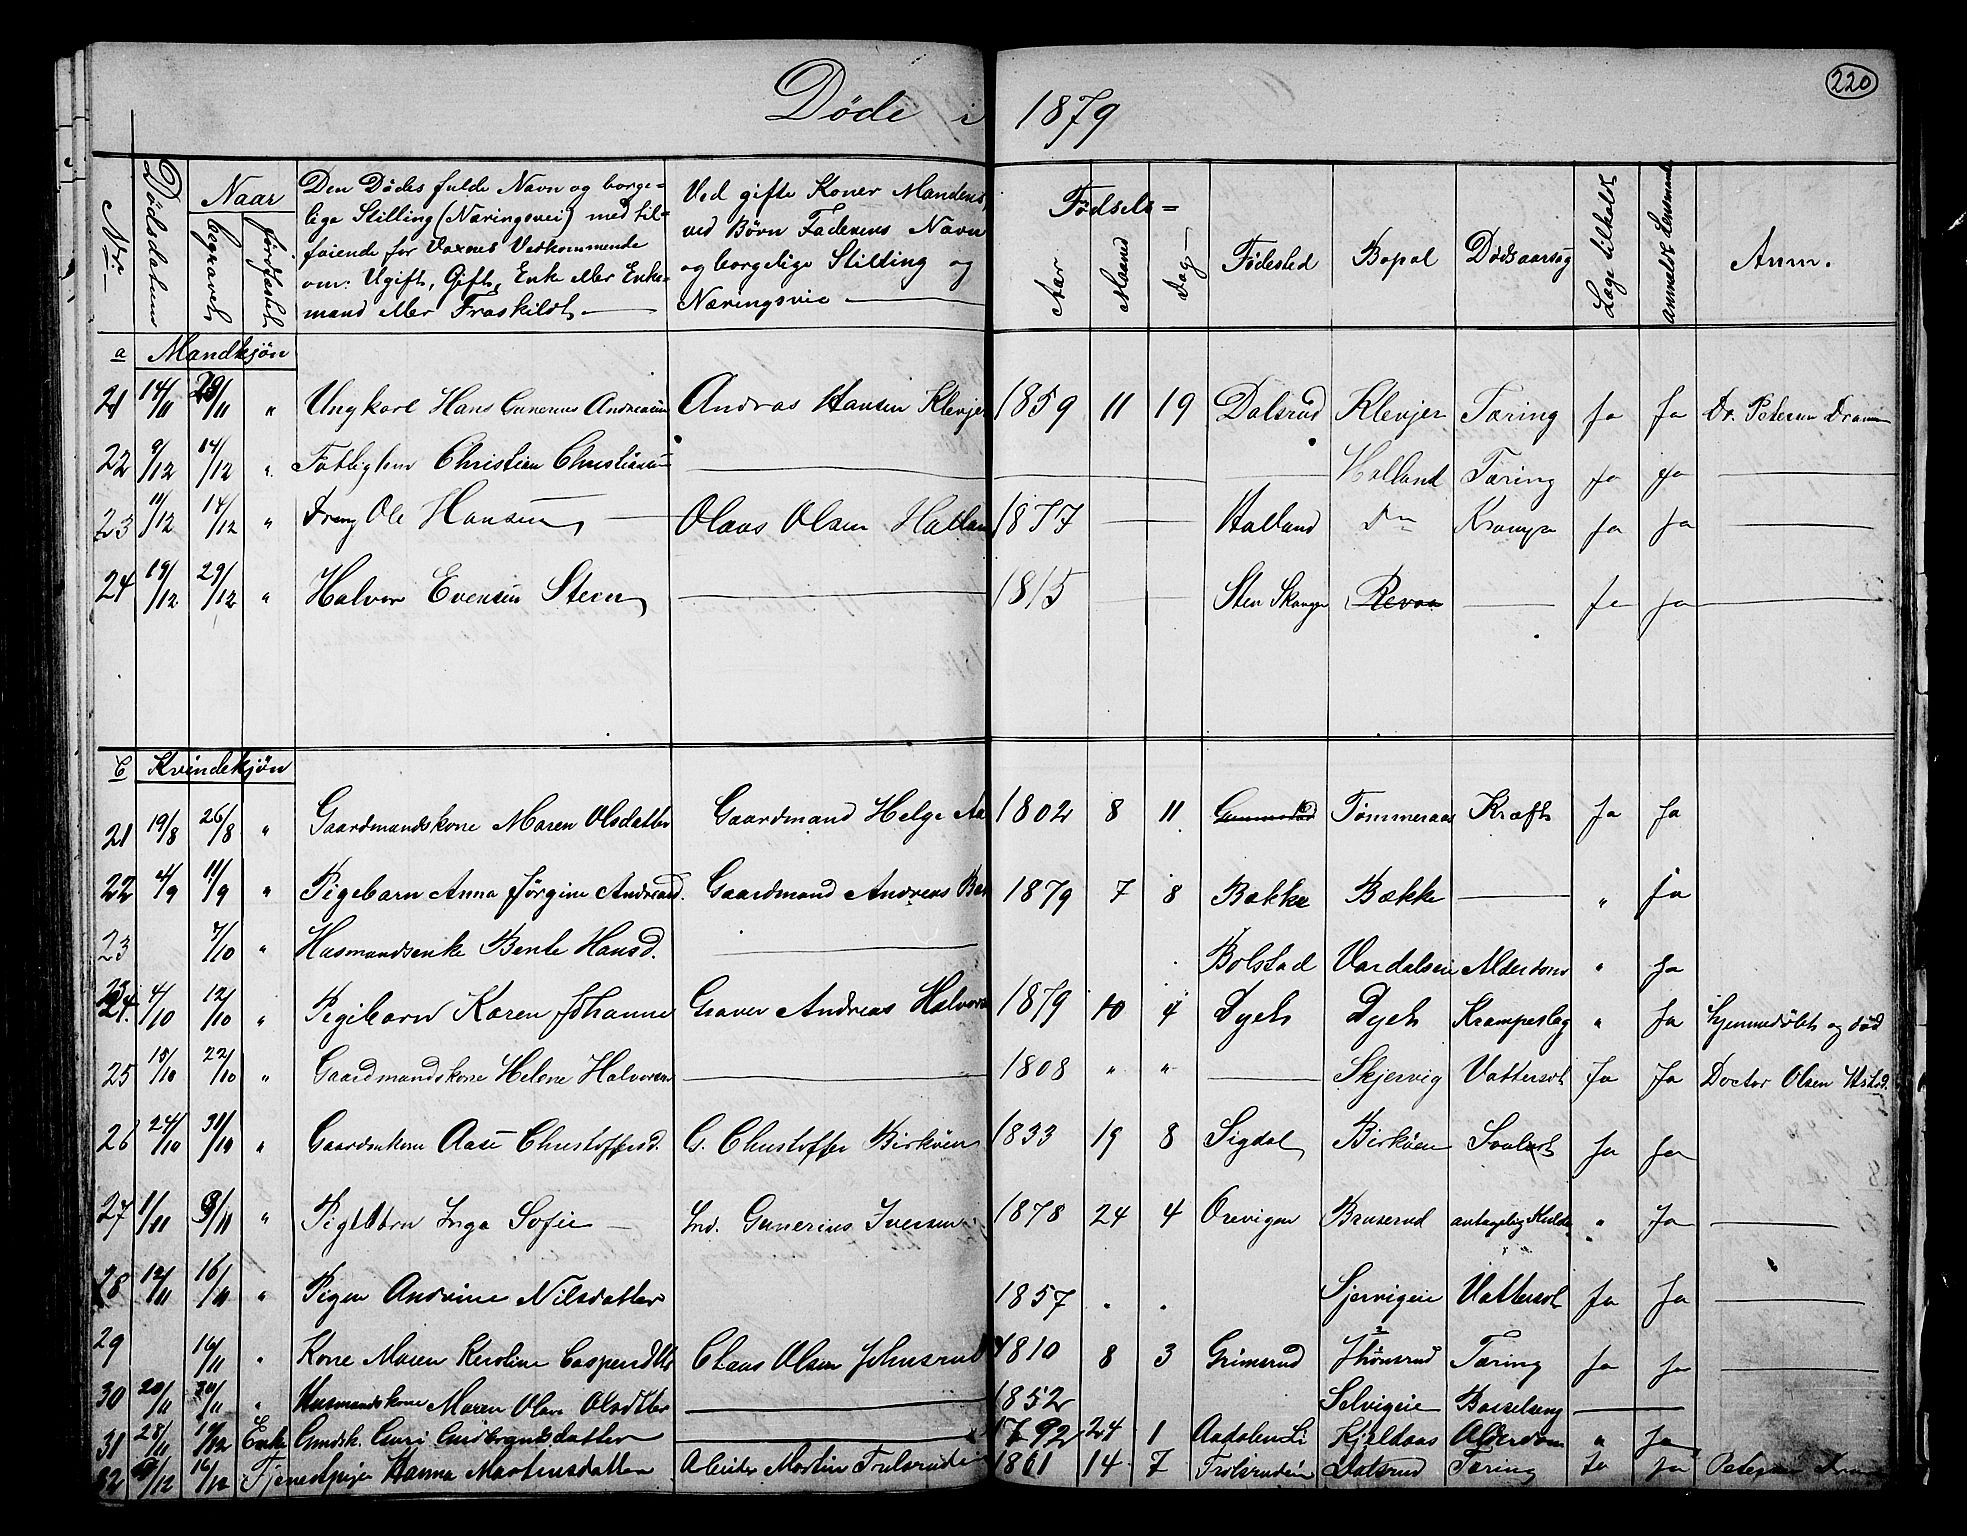 220
Døde i 1879
Nr. Dødsdatum Naar begravet jordfæstet Den Dødes fulde Navn og borge=
lige Stilling (Næringsvei) med til=
føiende for Voxnes Vedkommende
om: Ugift, Gift, Enke eller Enke=
mand eller Fraskildt
Ved gifte Koner Mandens,
ved Børn Faderens Navn
og borgelige Stilling og
Næringsvie
Fødsels=
Aar Maaned Dag Fødested Bopæl Dødsaarsag Læge tilkaldt Anmeldt Lensmand Anm.
a Mandkjøn
21 14/11 " Ungkarl Hans Andreasen Andras Hansen Klevjer 1859 11 19 Dalsrud Klevjer Tæring Ja Ja Dr. Petersen
22 9/12 14/12 " Christian Christiansen Halland Tæring Ja Ja
23 11/12 14/12 " Dreng Ole Hansen Olaas Olsen Hallan 1877 Halland Do Krampe Ja Ja
24 19/12 29/12 " Halvor Evensen Steen 1815 Sten Ja Ja
b Kvindekjøn
21 19/8 26/8 " Gaardmandskone Maren Olsdatter Gaardmand Helge Aa 1802 8 11 Tømmeraas Kræft Ja Ja
22 4/9 11/9 " Pigebarn Anna Jørgine Andreasd. Gaardmand Andreas Bæk 1879 7 8 Bække Bække " Ja
23 7/10 " Husmandsenke Bente Hansd. Bolstad Vardalseie Alderdoms " Ja
24. 4/10 12/10 " Pigebarn Karen Johanne Graver Andreas Halvors 1879 10 4 Dyets Dyets Krampeslag " Ja Hjemmedøbt og død
25 15/10 22/10 " Gaardmandskone Helene Halvorsen 1808 " " Skjervig Vattersot Ja Ja Doctor Olsen
26 24/10 31/10 " Aase Christoffersd. G. Christoffer Birkøen 1833 19 8 Sigdal Birkøen Ja Ja
27 1/11 9/11 " Inga Sofie Ind. Gunerius Iversen 1878 24 4 Orevigen Bruserud antagelig " Ja
28 12/11 16/11 " Pigen Andrine Nilsdatter 1857 " " Vattersot Ja Ja
29 16/11 " Kone Maren Karoline Claas Olsen Johnsrud 1810 8 3 Grimsrud Tæring Ja Ja
30 20/11 30/11 " Husmandskone Maren Olava Olsdtter 1852 Selvigeie Barselseng
31 25/11 Enke Guri Gudbrandsdatter 1792 24 1 Aadalen Li Kjeldaas Alderdom " Ja
32 16/12 Tjenestepige Hanna Martinsdatter Martin 1861 14 7 Dalsrud Tæring Ja Ja